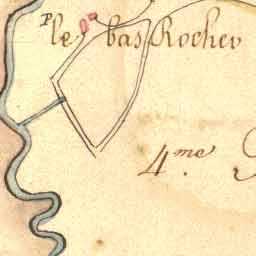 P. le bas Rocher
4.me